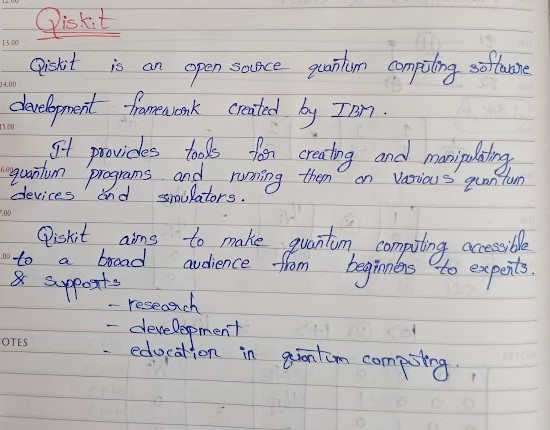 Qiskit
13.00
Qiskit is an open source quantum computing software
14.00
development framework created by IBM.
15.00
It provides tools for creating and manipulating
quantum programs and running them on various quantum
devices and simulators.
7.00
Qiskit aims to make quantum computing accessible
.00
to a broad audience from beginners to experts.
& supports
- research
- development
OTES
- education in quantum computing.